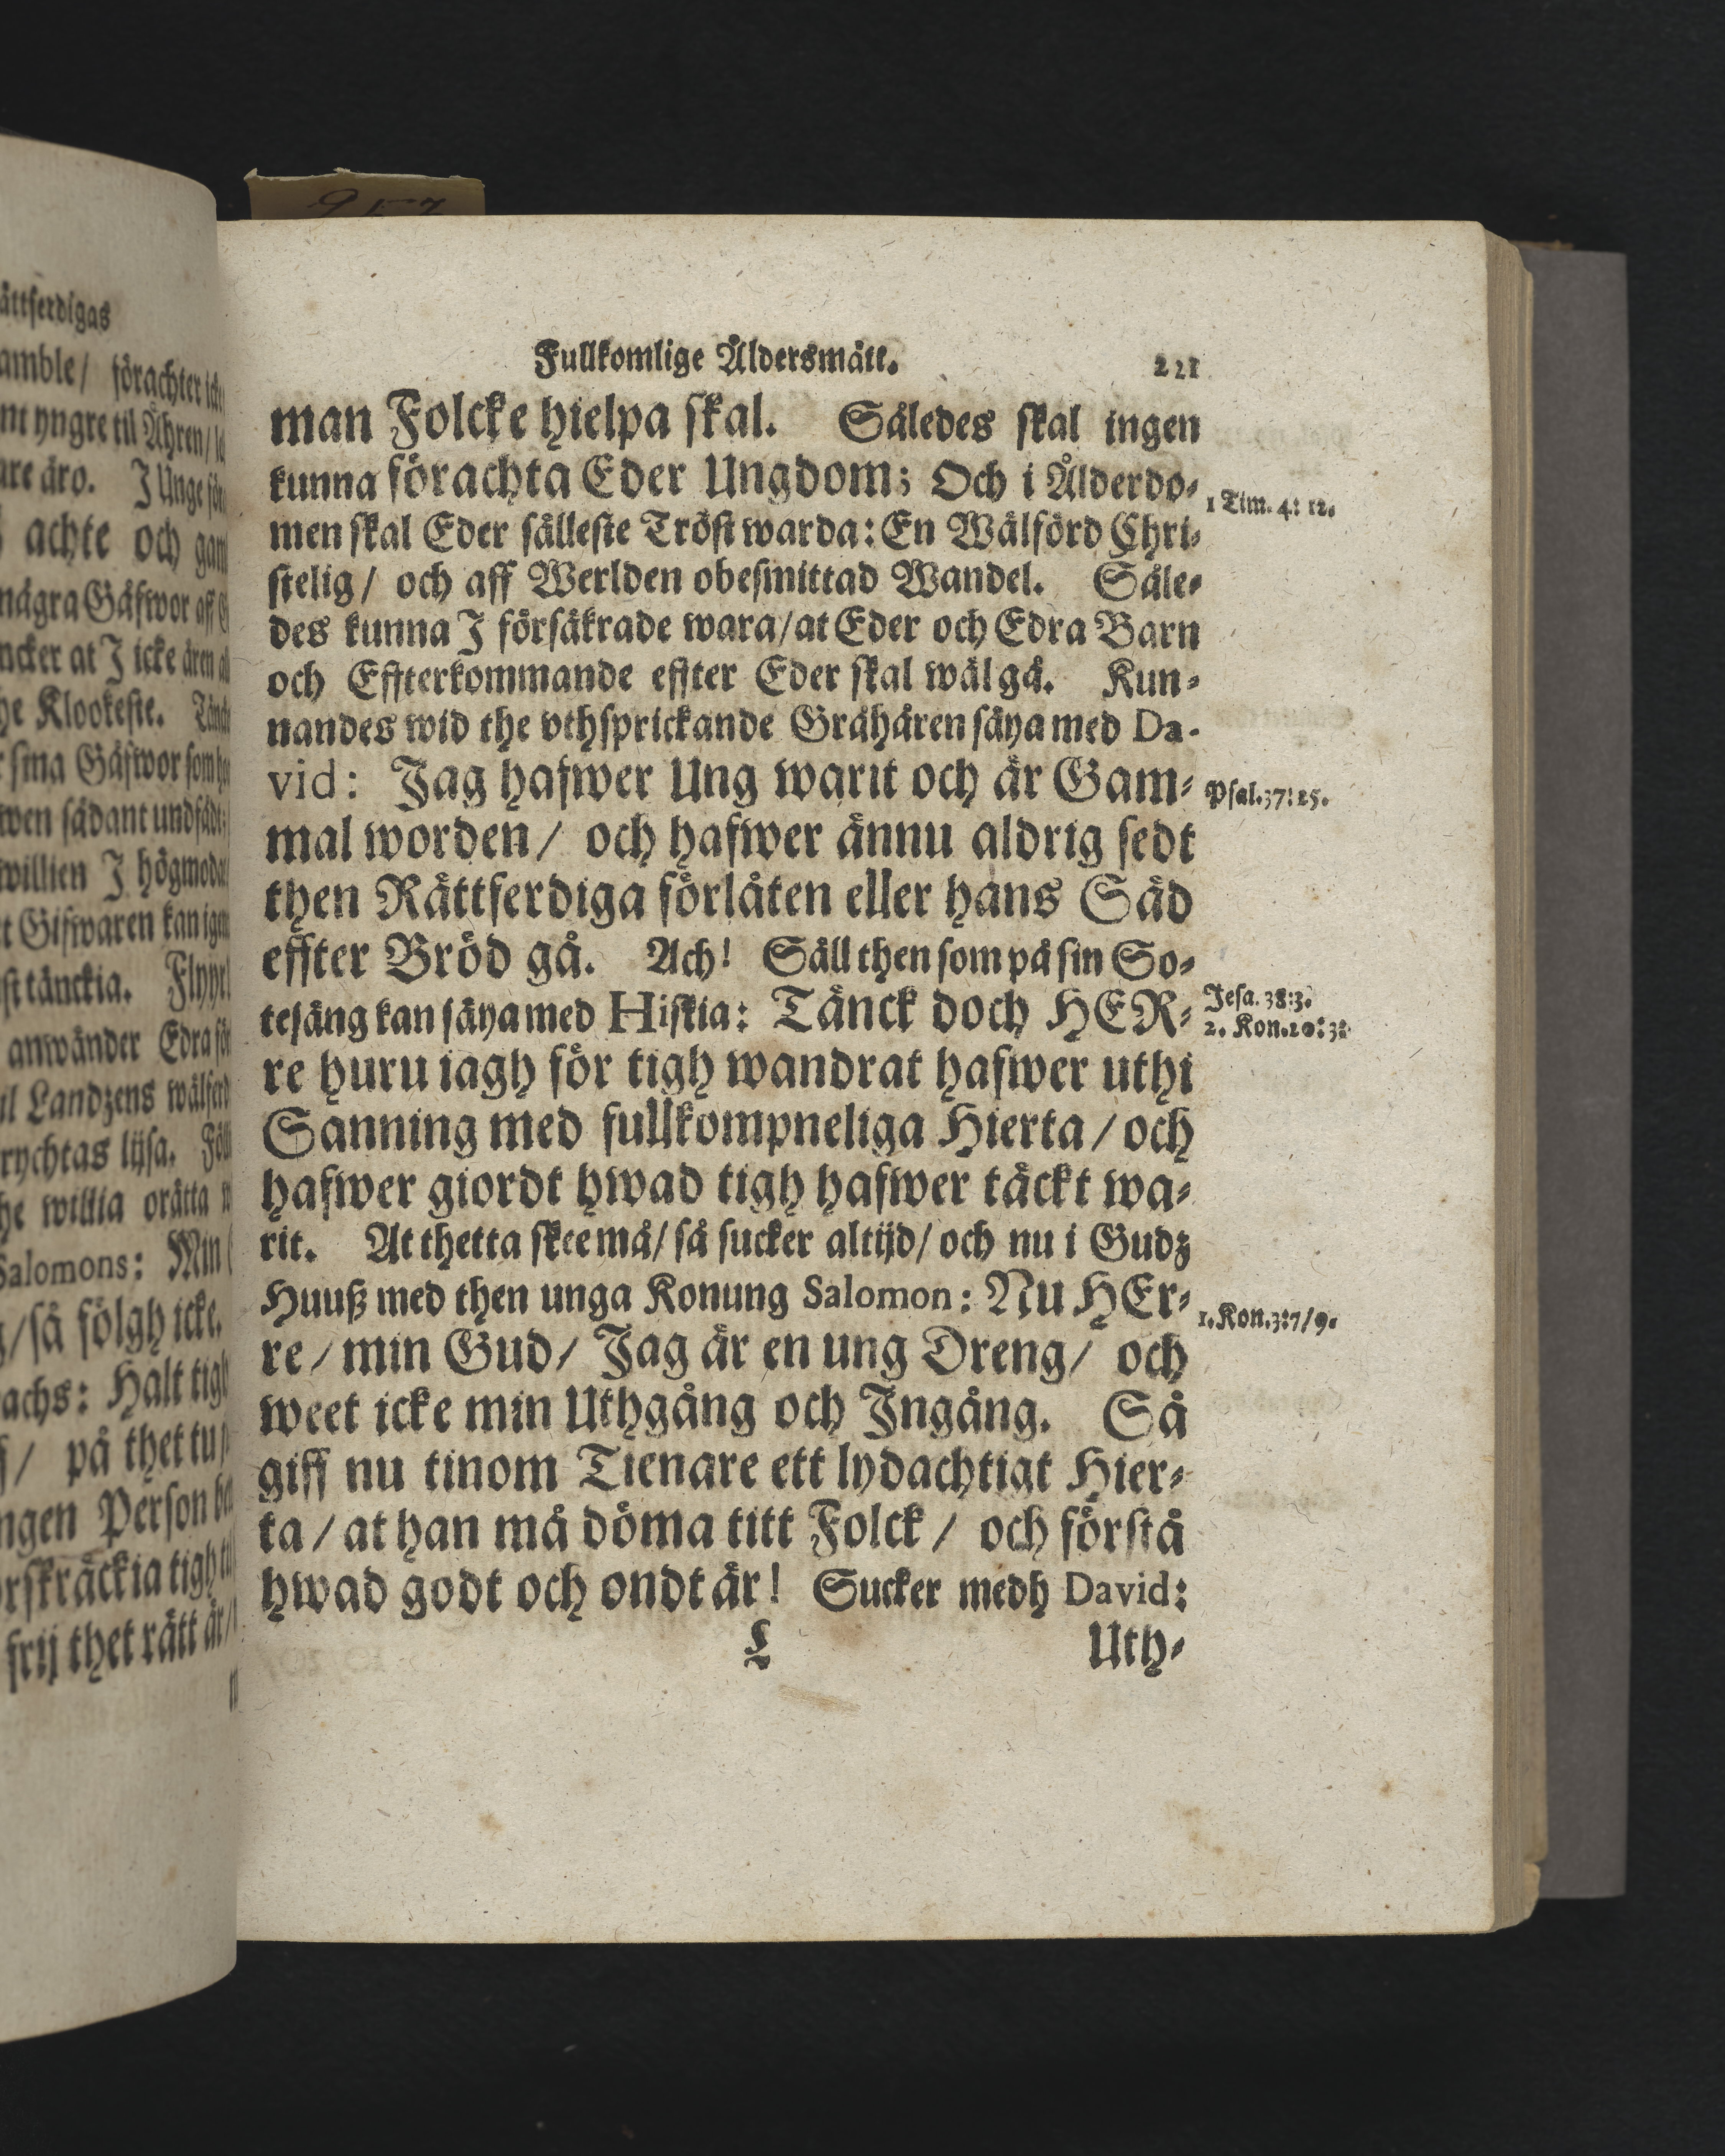 ättferdigas
amble/ förachter
nt yngre til Åhren/
are äro. J Unge
achte och
några Gåfwor aff
ncker at J icke ären
he Klookeste.
sina Gåfwor som
wen sådant
willien J
t Gifwaren kan
st tänckia.
anwänder Edra
il Landzens
rychtas lijsa.
he willia orätta
Salomons: Min
g/så fölgh icke.
achs: Halt tigh
/ på thet tu
ngen Person
rskräckia tigh
frij thet rätt är/
Fullkomlige Åldersmått. 221
man Folcke hielpa skal. Således skal ingen
kunna förachta Eder Ungdom; Och i Ålderdo-
1 Tim. 4: 12.
men skal Eder sälleste Tröst warda: En Wälförd Chri-
stelig/ och aff Werlden obesmittad Wandel. Såle-
des kunna J försäkrade wara/at Eder och Edra Barn
och Effterkommande effter Eder skal wäl gå. Kun-
nandes wid the vthsprickande Gråhåren säya med Da-
vid: Jag hafwer Ung warit och är Gam-
Psal.37:25.
mal worden/ och hafwer ännu aldrig sedt
then Rättferdiga förlåten eller hans Säd
effter Bröd gå. Ach! Säll then som på sin So-
tesäng kan säya med Hiskia: Tänck doch HER-
Jesa. 38:3.
2. Kon.20:3:
re huru iagh för tigh wandrat hafwer uthi
Sanning med fullkompneliga Hierta/och
hafwer giordt hwad tigh hafwer täckt wa-
rit. At thetta skee må/ så sucker altijd/ och nu i Gudz
Huuß med then unga Konung Salomon: Nu HEr-
1. Kon.3:7/9.
re/min Gud/ Jag är en ung Dreng/ och
weet icke min Uthgång och Jngång. Så
giff nu tinom Tienare ett lydachtigt Hier-
ta/at han må döma titt Folck/ och förstå
hwad godt och ondt är! Sucker medh David:
L Uth-